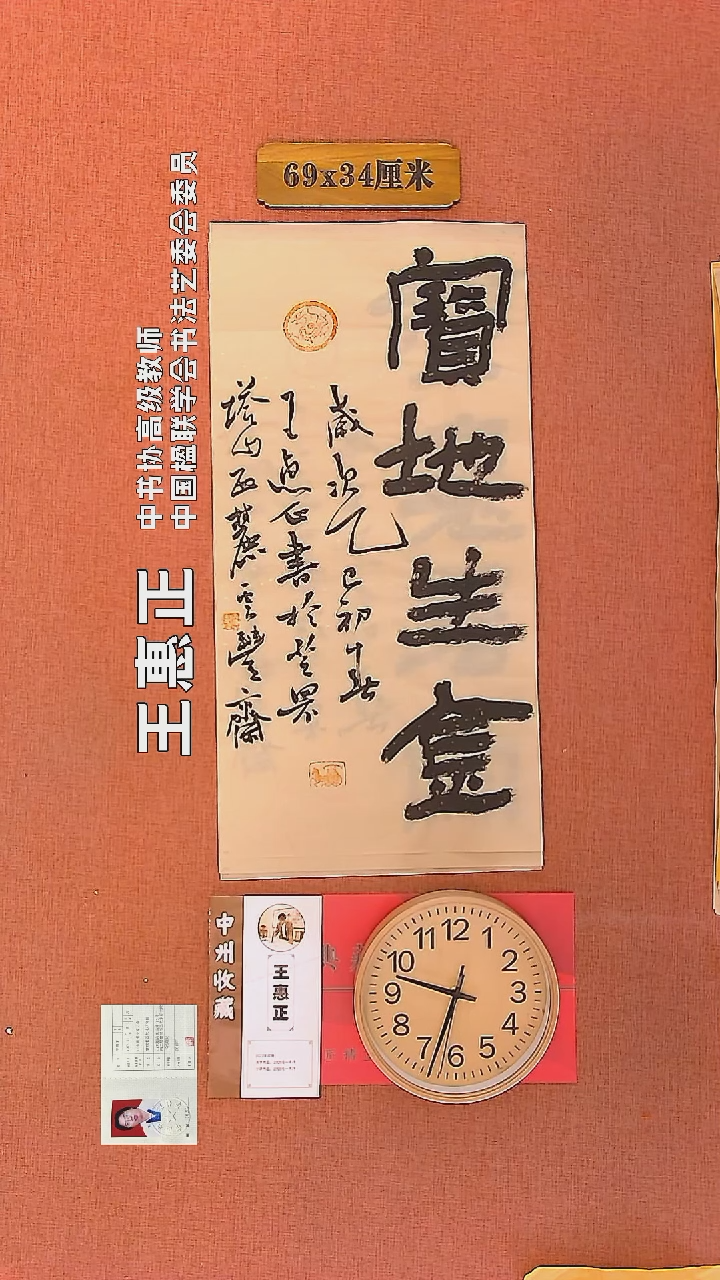 69x34厘米
寶地生金
歲次乙巳初春
王惠正書於登界
塔山西麓雲豐齋
王惠正
中书协高级教师
中国楹联学会书法艺委会委员
中州收藏
王惠正
12
1
2
3
4
5
6
7
8
9
10
11